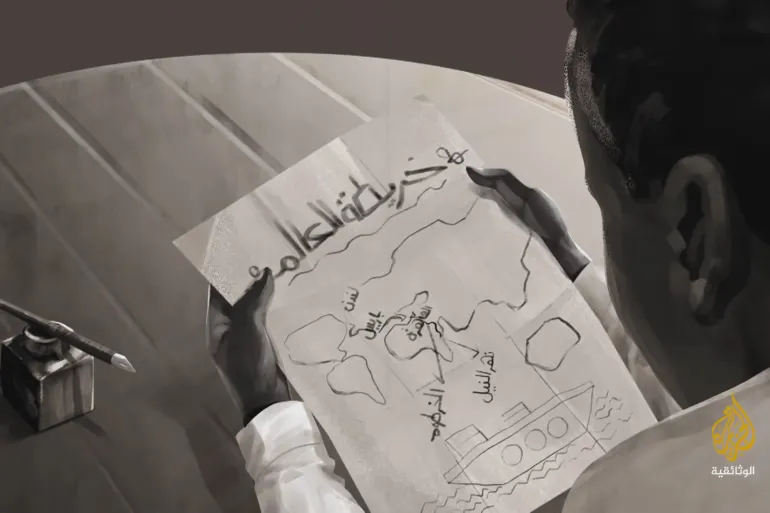 خريطة العالم
لندن
باريس
القاهرة
نهر النيل
الخرطوم
الوثائقية